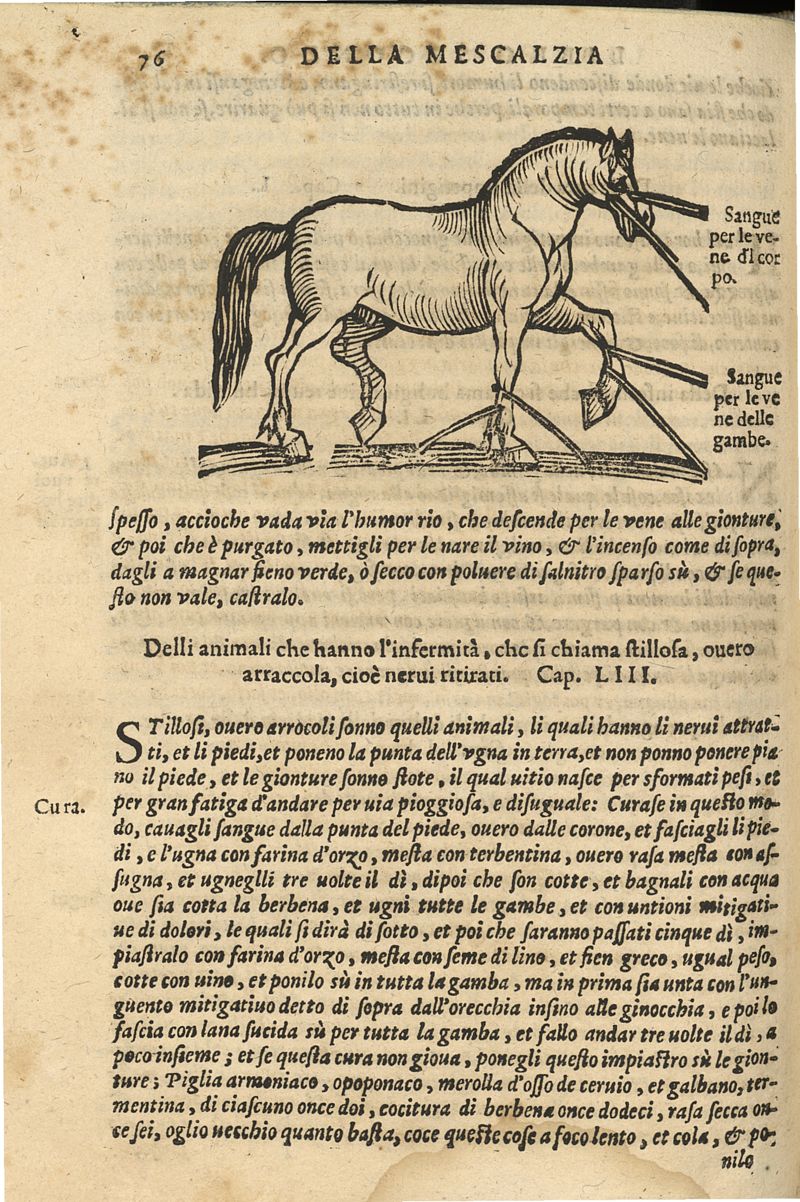 76
DELLA MESCALZIA
Sangue
per le ve-
ne d'l cor
po.
Sangue
per le ve
ne delle
gambe.
spesso, accioche vada via l'humor rio, che descende per le vene alle gionture,
& poi che è purgato, mettigli per le nare il vino, & l'incenso come di sopra,
dagli a magnar fieno verde, ò secco con poluere di salnitro sparso sù, & se que-
sto non vale, castralo.
Delli animali che hanno l'infermità, che si chiama stillosa, ouero
arraccola, cioè nerui ritirati. Cap. LIII.
STillosi, ouero arrocoli sonno quelli animali, li quali hanno li nerui attrat-
ti, et li piedi, et poneno la punta dell'vgna in terra, et non ponno ponere pia
no il piede, et le gionture sonno stote, il qual uitio nasce per sformati pesi, et
Cura.
per gran fatiga d'andare per uia pioggiosa, e disuguale: Curase in questo mo-
do, cauagli sangue dalla punta del piede, ouero dalle corone, et fasciagli li pie-
di, e l'ugna con farina d'orzo, mesta con terbentina, ouero rasa mesta con as-
sugna, et ugneglli tre uolte il dì, dipoi che son cotte, et bagnali con acqua
oue sia cotta la berbena, et ugni tutte le gambe, et con untioni mitigati-
ue di dolori, le quali si dirà di sotto, et poi che saranno passati cinque dì, im-
piastralo con farina d'orzo, mesta con seme di lino, et fien greco, ugual peso,
cotte con uino, et ponilo sù in tutta la gamba, ma in prima sia unta con l'un-
guento mitigatiuo detto di sopra dall'orecchia insino alle ginocchia, e poi lo
fascia con lana sucida sù per tutta la gamba, et fallo andar tre uolte il dì, a
poco insieme; et se questa cura non gioua, ponegli questo impiastro sù le gion-
ture; Piglia armoniaco, opoponaco, merolla d'osso de ceruio, et galbano, ter-
mentina, di ciascuno once doi, cocitura di berbena once dodeci, rasa secca on-
ce sei, oglio uecchio quanto basta, coce queste cose a foco lento, et cola, & po-
nilo